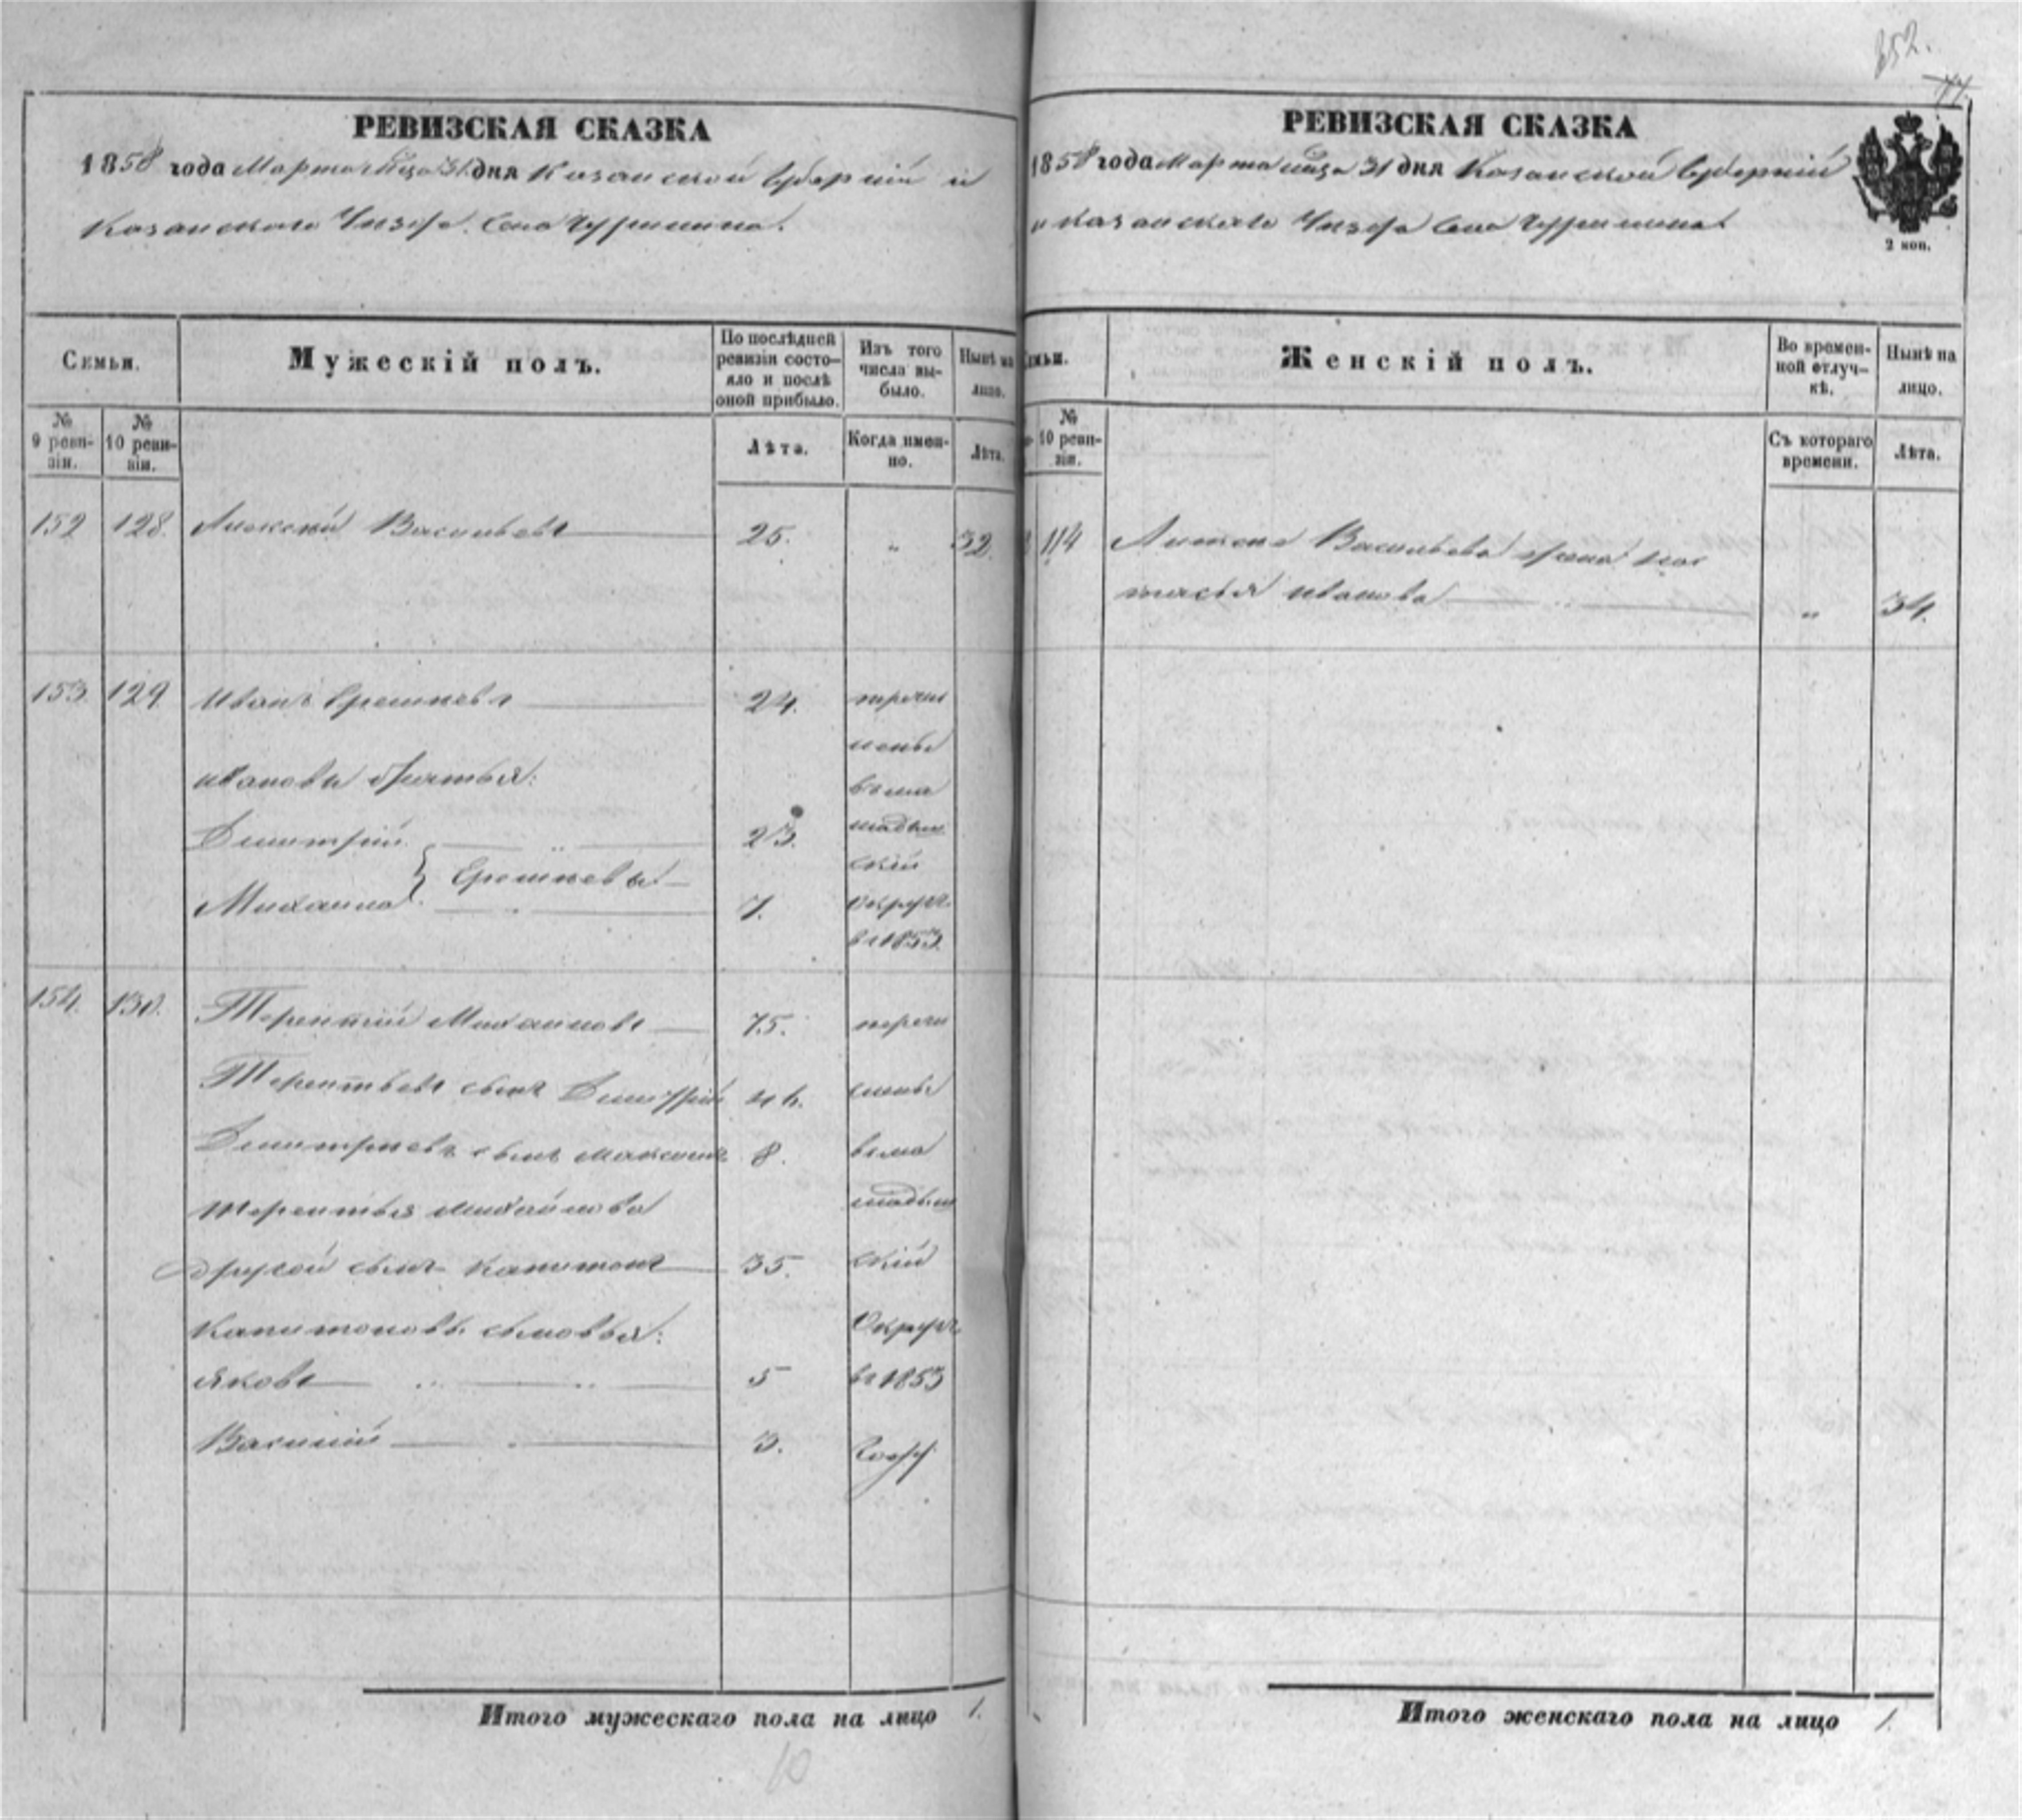 352.
77.
РЕВИЗСКАЯ СКАЗКА
1858 года Марта м̃ца 31 дня Казанской Губерніи и
Казанскаго Уѣзда Села
Семьи.
Мужескій полъ.
По послѣдней ревизіи состо-
яло и послѣ
оной прибыло.
Изъ того
числа вы-
было.
Нынѣ на
лицо.
№
9 реви-
зіи.
№
10 реви-
зіи.
Лѣта.
Когда имен-
но.
Лѣта.
152 128. Алексѣй Васильевъ 25. „ 32.
153. 129. Иванъ 24. перечи
слены
Ивановы братья: въ ма
Димитрій 23. мадыш
скій
Михаила 7. Округъ
въ 1853.
154. 130. Терентій Михайловъ 75. перечи
Терентьевъ сынъ Димитрій 46. слены
Димитріевъ сынъ Максимъ 8. въ ма
Терентья Михайлова мадыш
другой сынъ Капитонъ 35. скій
Капитоновы сыновья: Округъ
Яковъ 5 въ 1853
Василій 3. году
Итого мужескаго пола на лицо 1.
10
РЕВИЗСКАЯ СКАЗКА
1858 года Марта м̃ца 31 дня Казанской Губерніи
и Казанскаго Уѣзда Села
2 коп.
Семьи.
Женскій полъ.
Во времен-
ной отлуч-
кѣ.
Нынѣ на
лицо.
№
10 реви-
зіи.
Съ котораго
времени.
Лѣта.
114 Васильева жена Нас
тасья Иванова „ 34.
Итого женскаго пола на лицо 1.